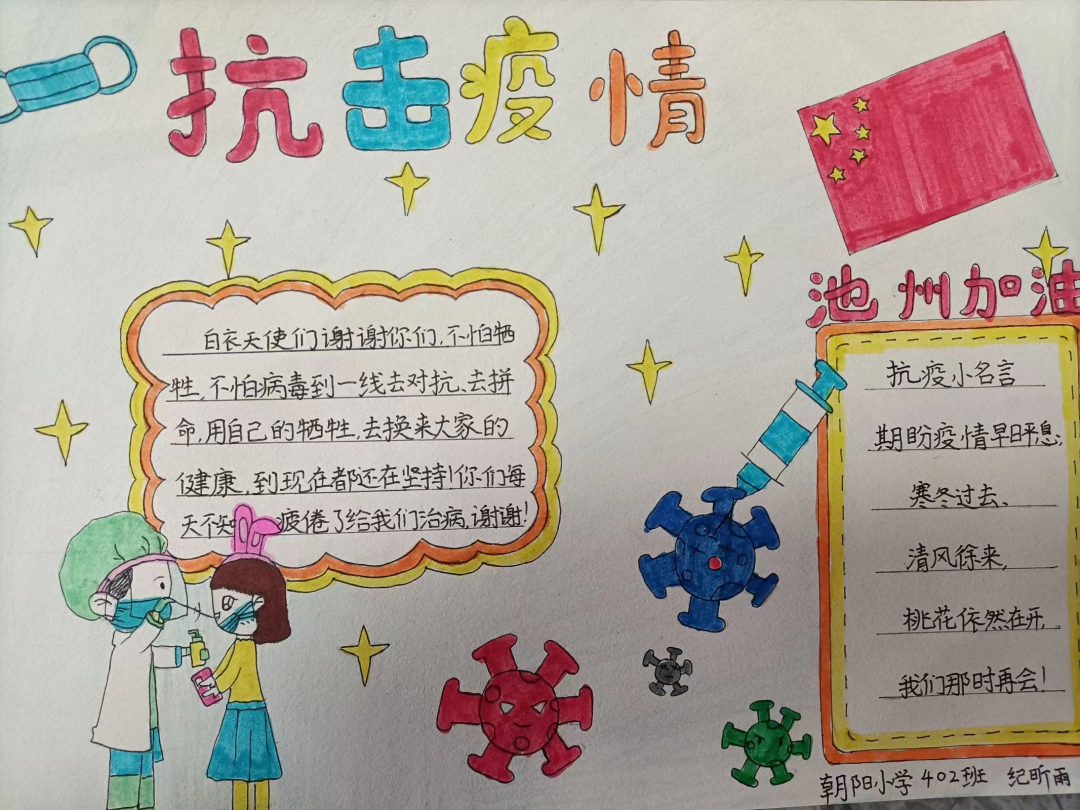 抗击疫情
白衣天使们谢谢你们,不怕牺
牲,不怕病毒到一线去对抗、去拼
命,用自己的牺牲,去换来大家的
健康,到现在都还在坚持!你们每
天不知 疲倦了给我们治病,谢谢!
池州加油
抗疫小名言
期盼疫情早日平息,
寒冬过去、
清风徐来,
桃花依然在开,
我们那时再会!
朝阳小学 402班 纪昕雨